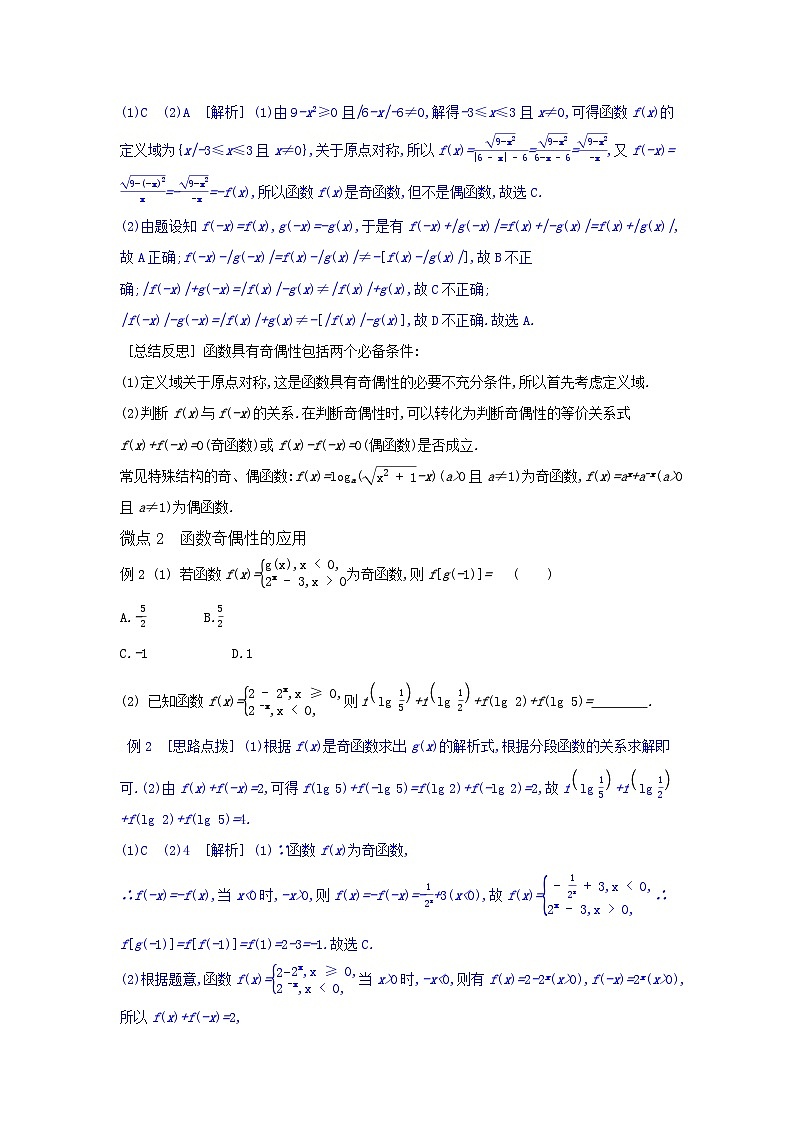 (1)C (2)A [解析] (1)由9-x²≥0且|6-x|-6≠0,解得-3≤x≤3且x≠0,可得函数f(x)的
定义域为{x|-3≤x≤3且x≠0},关于原点对称,所以f(x)=√(9-x²)/(|6-x|-6)=√(9-x²)/(6-x-6)=√(9-x²)/(-x),又f(-x)=
√(9-(-x)²)/x=-√(9-x²)/(-x)=-f(x),所以函数f(x)是奇函数,但不是偶函数,故选C.
(2)由题设知f(-x)=f(x),g(-x)=-g(x),于是有f(-x)+|g(-x)|=f(x)+|-g(x)|=f(x)+|g(x)|,
故A正确;f(-x)-|g(-x)|=f(x)-|g(x)|≠-[f(x)-|g(x)|],故B不正
确;|f(-x)|+g(-x)=|f(x)|-g(x)≠|f(x)|+g(x),故C不正确;
|f(-x)|-g(-x)=|f(x)|+g(x)≠-[|f(x)|-g(x)],故D不正确.故选A.
[总结反思] 函数具有奇偶性包括两个必备条件:
(1)定义域关于原点对称,这是函数具有奇偶性的必要不充分条件,所以首先考虑定义域.
(2)判断f(x)与f(-x)的关系.在判断奇偶性时,可以转化为判断奇偶性的等价关系式
f(x)+f(-x)=0(奇函数)或f(x)-f(-x)=0(偶函数)是否成立.
常见特殊结构的奇、偶函数:f(x)=logₐ(√(x²+1)-x)(a>0且a≠1)为奇函数,f(x)=aˣ+a⁻ˣ(a>0
且a≠1)为偶函数.
微点2 函数奇偶性的应用
例2 (1) 若函数f(x)={g(x),x<0, 2ˣ-3,x>0为奇函数,则f[g(-1)]= ( )
A.-5/2 B.5/2
C.-1 D.1
(2) 已知函数f(x)={2-2ˣ,x≥0, 2⁻ˣ,x<0,则f(lg 1/5)+f(lg 1/2)+f(lg 2)+f(lg 5)=________.
例2 [思路点拨] (1)根据f(x)是奇函数求出g(x)的解析式,根据分段函数的关系求解即
可.(2)由f(x)+f(-x)=2,可得f(lg 5)+f(-lg 5)=f(lg 2)+f(-lg 2)=2,故f(lg 1/5)+f(lg 1/2)
+f(lg 2)+f(lg 5)=4.
(1)C (2)4 [解析] (1)∵函数f(x)为奇函数,
∴f(-x)=-f(x),当x<0时,-x>0,则f(x)=-f(-x)=-1/2ˣ+3(x<0),故f(x)={-1/2ˣ+3,x<0, 2ˣ-3,x>0, ∴
f[g(-1)]=f[f(-1)]=f(1)=2-3=-1.故选C.
(2)根据题意,函数f(x)={2-2ˣ,x≥0, 2⁻ˣ,x<0,当x>0时,-x<0,则有f(x)=2-2ˣ(x>0),f(-x)=2ˣ(x>0),
所以f(x)+f(-x)=2,